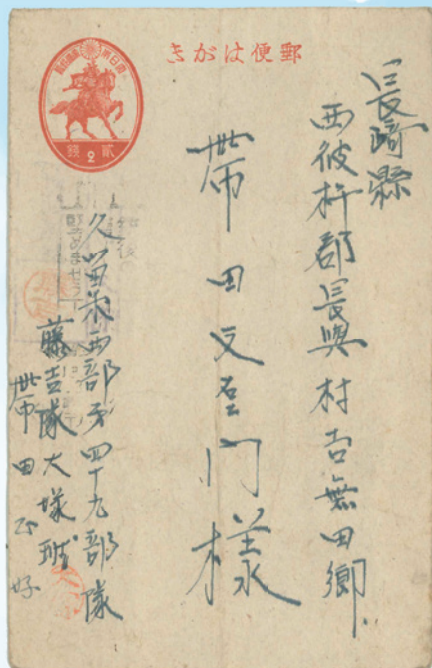 郵便はがき
大日本帝國郵便
貳
2
錢
長崎縣
西彼杵郡長與村吉無田鄉
帶田又左門様
久留米西部第四十九部隊
藤吉隊大塚班
帶田正好